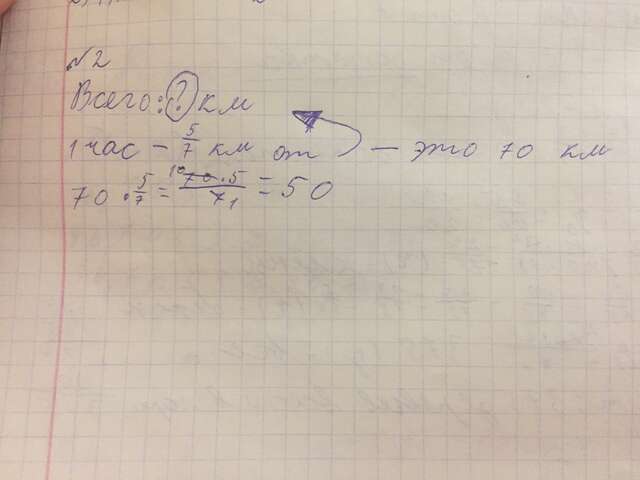 №2
Всего: ? км
1 час – 5/7 км от — это 70 км
70 · 5/7 = 10 70 · 5 / 7 1 = 50